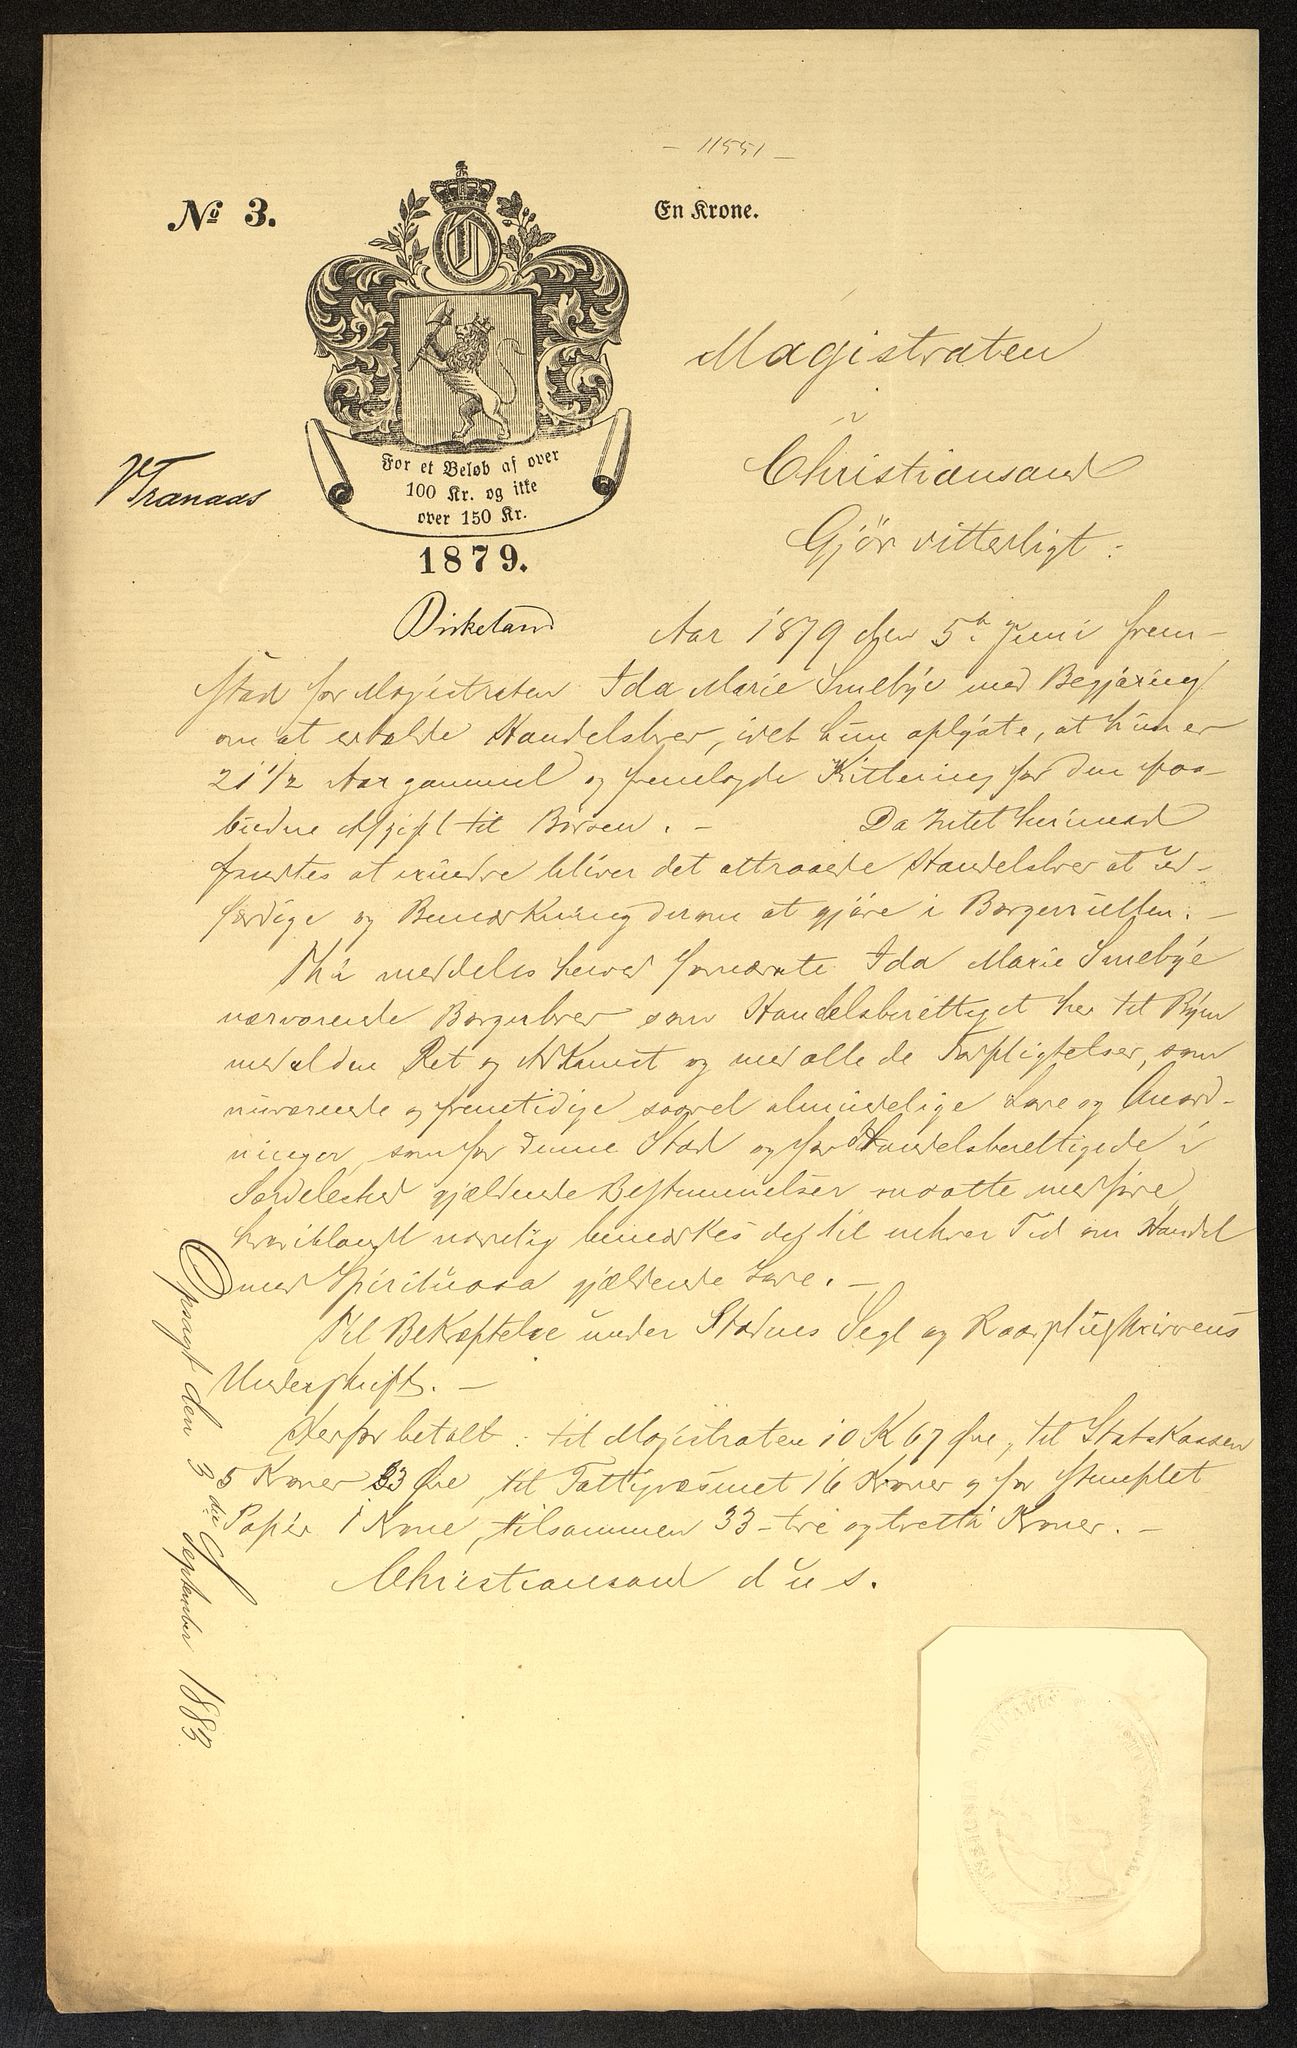 - 11551 -
No 3.
En Krone.
For et Beløb af over
100 Kr. og ikke
over 150 Kr.
1879.
VTranaas
Birkeland
Magistraten
i
Christiansand
Gjør vitterligt:
Aar 1879 den 5te Juni frem-
stod for Magistraten Ida Marie Smebye med Begjæring
om at erholde Handelsbrev, idet hun oplyste, at hun er
21 1/2 Aar gammel og fremlagde Kvittering for den paa-
budne Afgift til Børsen. - Da Intet herimod
fandtes at erindre bliver det attraaede Handelsbrev at ud-
færdige og Bemærkning derom at gjøre i Borgerrullen. -
Thi meddeles herved fornævnte Ida Marie Smebye
nærværende Borgerbrev som Handelsberettiget her til Byen
med al den Ret og Adkomst og med alle de Forpligtelser, som
nuværende og fremtidige saavel almindelige Love og Anord-
ninger, som for denne Stad og for Handelsberettigede i
Særdeleshed gjældende Bestemmelser maatte medføre,
hvoriblandt navnlig bemærkes de til enhver Tid om Handel
med Spirituosa gjældende Love. -
Til Bekræftelse under Stadens Segl og Raadstuskriverens
Underskrift. -
Herfor betalt: til Magistraten 10 K 67 Øre, til Statskassen
5 Kroner 33 Øre, til Fattigvæsenet 16 Kroner og for stemplet
Papir 1 Krone, tilsammen 33 - tre og tretti Kroner. -
Christiansand d u s.
Opsagt den 3die September 1883.